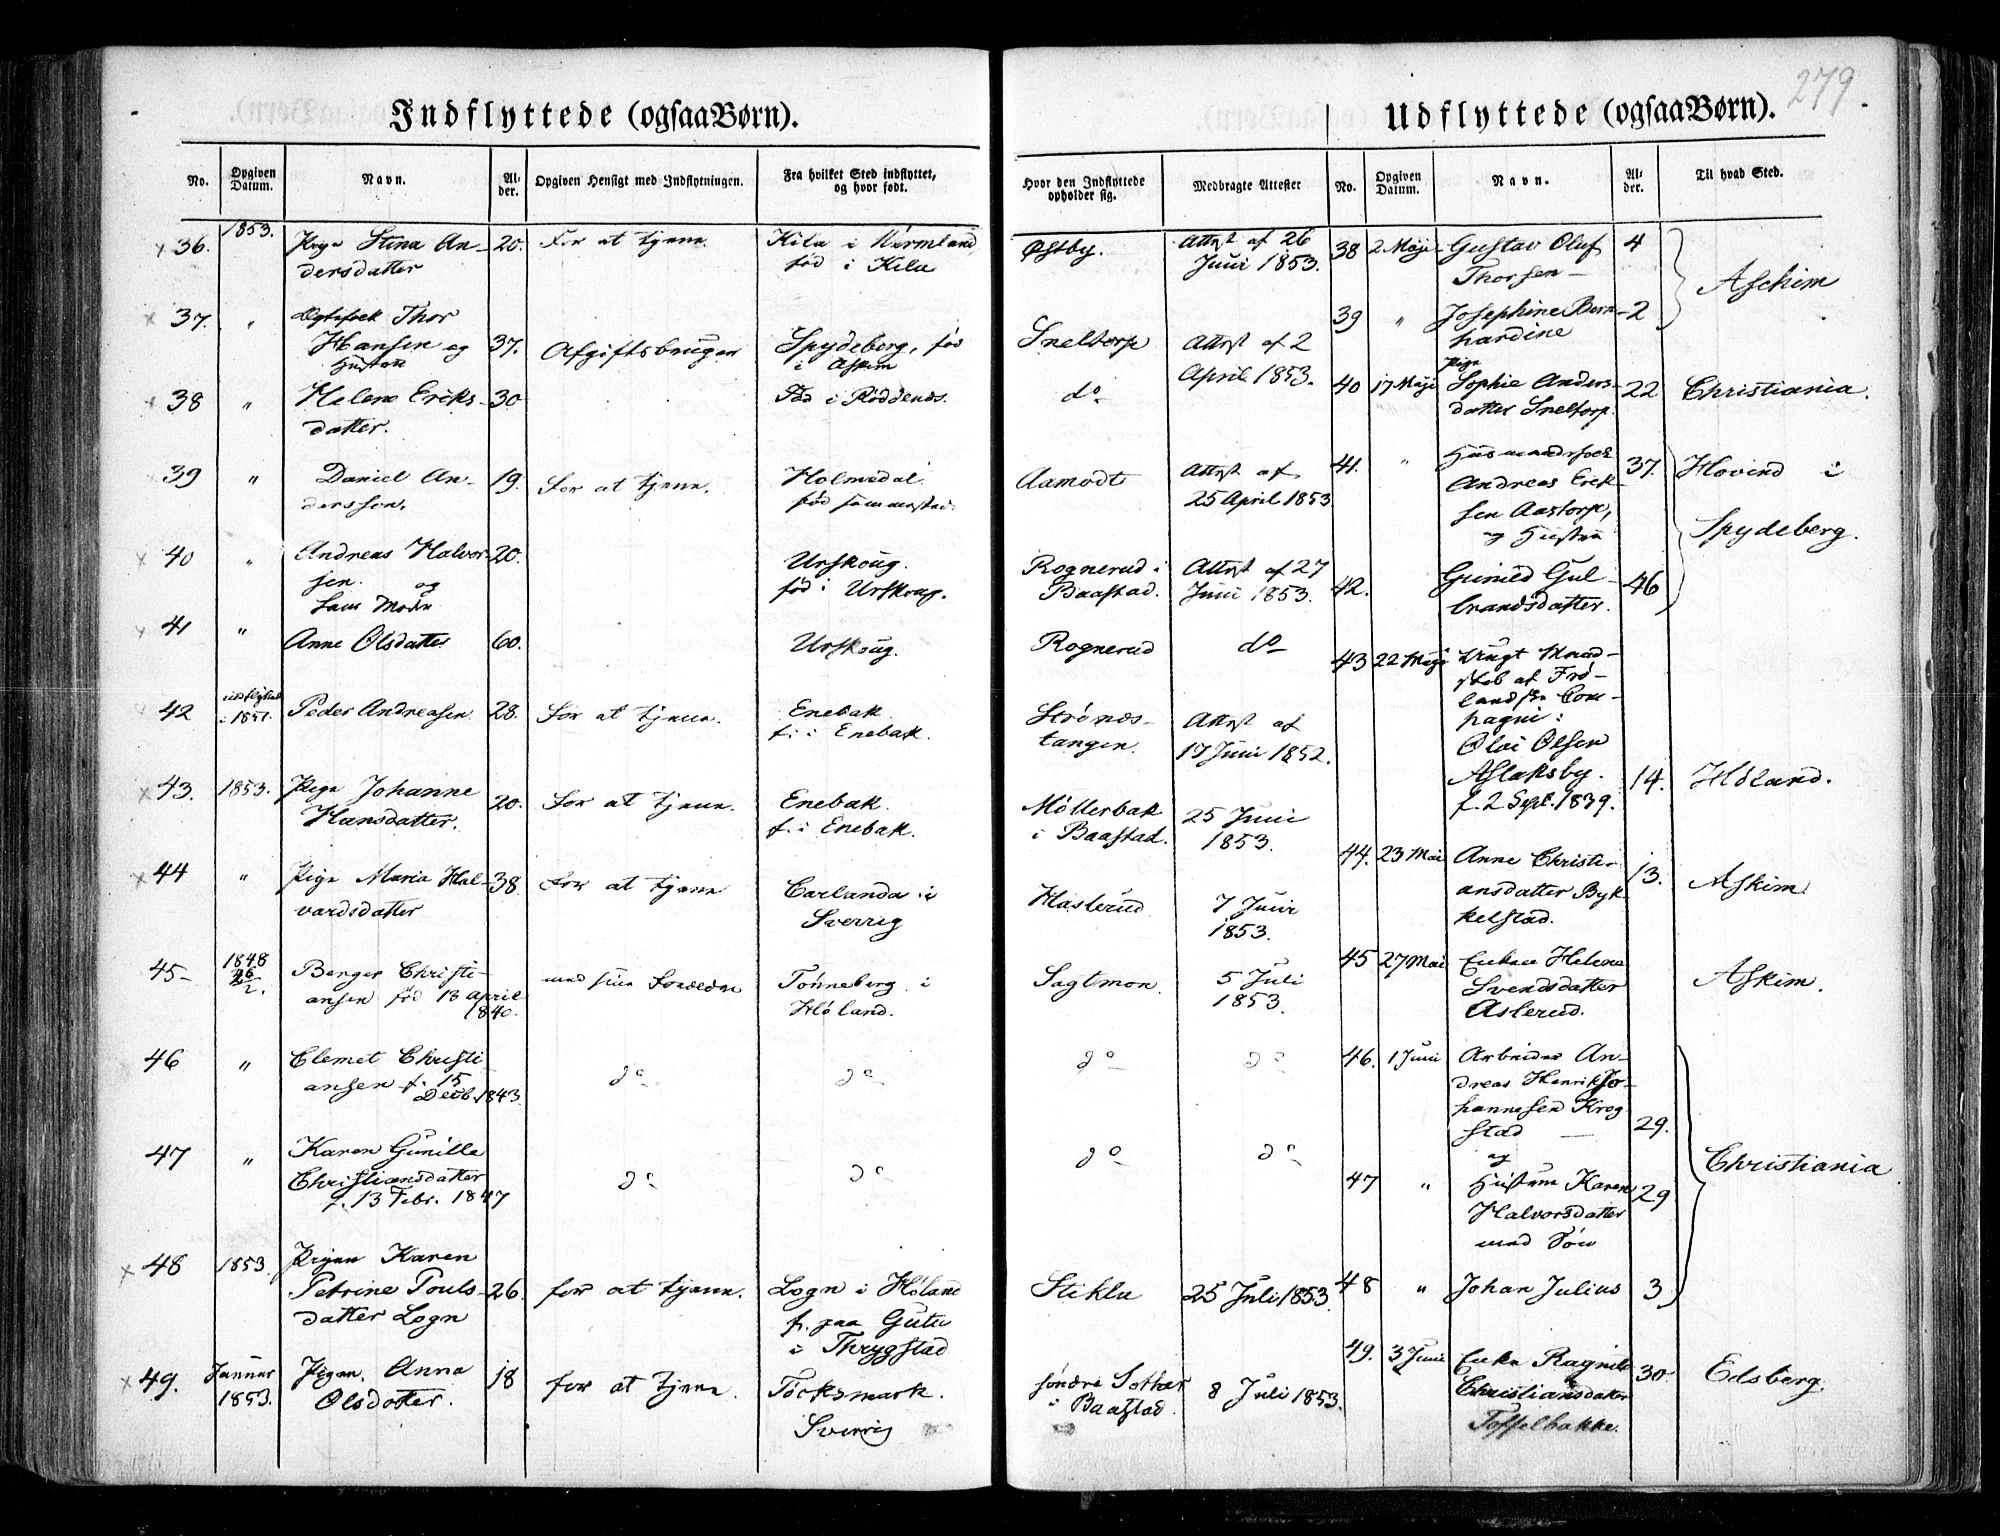 279.
Indflyttede (ogsaa Børn).
No.
Opgiven Datum.
Navn.
Alder.
Opgiven Hensigt med Indflytningen.
Fra hvilket Sted indflyttet, og hvor født.
Hvor den Indflyttede opholder sig.
Medbragte Attester
36. 1853. Pige Stina An- 20. For at tjene. Kila i Wermland, Østby. Attest af 26
dersdatter född i Kila Juni 1853.
37. " Ægtefolk Thor
Hansen og 37. Afgiftsbruger Spydeberg, fød Sneltorp Attest af 2
Hustru i Askim April 1853.
38 " Helene Eriks- 30 Fød i Røddenes. do
datter.
39 " Daniel An- 19. For at tjene. Holmedal. Aamodt Attest af
dersson. fød sammesteds 25 April 1853
40 " Andreas Halvor- 20. Urskoug. Rognerud i Attest af 27
sen. og fød i Urskoug. Baastad. Juni 1853.
hans Moder
41 " Anne Olsdatter 60. Urskoug. Rognerud do
42 indflyttet i 1851. Peder Andreasen 28. For at tjene. Enebak Strønds- Attest af
f. i Enebak. tangen. 17 Juni 1852.
43. 1853. Pige Johanne 20. For at tjene. Enebak. Møllerbak 25 Juni
Hansdatter. f. i Enebak. i Baastad. 1853.
44 " Pige Maria Hal- 38. For at tjene Carlanda i Haslerud 7 Juni
vardsdatter Sverrig 1853.
45 1848 26/2. Berger Christi- med sine Forældre Tønneberg i Sagtmon. 5 Juli
ansen fød 13 April Høland. 1853.
1840.
46 " Clemet Christi do do do do
ansen f. 15
Decb. 1843
47 " Karen Gunille do do do do
Christiansdatter
f. 13 Febr. 1847
48 1853. Pigen Karen
Petrine Pouls- 26. for at tjene. Logn i Høland Stikla 25 Juli 1853.
datter Logn f. paa Gutu
i Thrygstad
49. Januar Pigen Anna 18 for at tjene. Töcksmark. søndre Sother 8 Juli 1853.
1853. Olsdatter. Sverrig i Baastad.
Udflyttede (ogsaa Børn).
No.
Opgiven Datum.
Navn.
Alder.
Til hvad Sted.
38 2 Maji Gustav Oluf 4
Thorsen Aschim
39 " Josephine Bern- 2
hardine
40 17 Maji Pige Sophie Anders- 22 Christiania.
datter Sneltorp.
41. " Husmandsfolk 37. Hovind i
Andreas Erik-
sen Aastorp, Spydeberg.
og Hustru
42. Gunild Gul- 46
brandsdatter.
43 22 Maji Ungt Mand-
skab af Frø-
landske Com-
pagni:
Olai Olsen
Aslaksby. 14. Høland.
f. 2 Sept. 1839.
44. 23 Mai Anne Christi- 13. Askim
ansdatter Byk-
kelstad.
45 27 Mai Enken Helene Askim.
Svendsdatter
Aslerud.
46. 1 Juni Arbeider An-
dreas Henrik Jo-
hannesen Krog 29.
stad
og Christiania
47 " Hustru Karen 29
Halvorsdatter
med Søn
48 " Johan Julius 3
49. 3 Juni Enke Ragnild 30. Edsberg.
Christiansdatter
Toffelbakke.